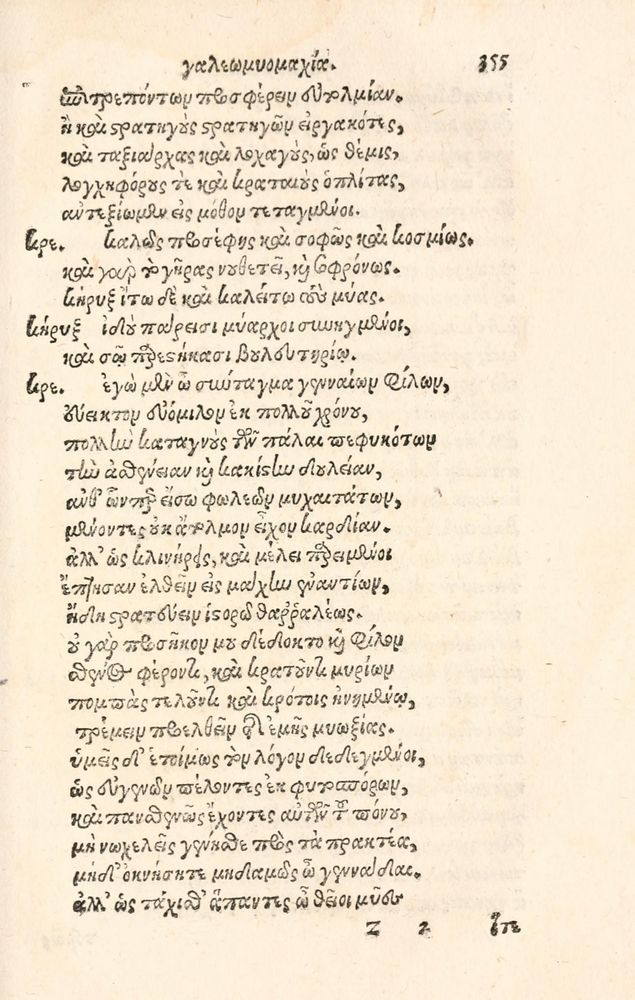 γαλεωμυομαχία. 355
ἐπιτρεπόντων προσφέρειν εὐτολμίαν.
ἢ καὶ στρατηγοὺς στρατηγῶν εἰργακότες,
καὶ ταξιάρχας καὶ λοχαγοὺς, ὡς θέμις,
λογχηφόρους τὲ καὶ κραταιοὺς ὁπλίτας,
ἀντεξίωμεν εἰς μόθον τεταγμένοι.
κρε. καλῶς προσέφης καὶ σοφῶς καὶ κοσμίως.
καὶ γὰρ τὸ γῆρας νουθετεῖ, καὶ σωφρόνως.
κήρυξ ἴτω δὲ καὶ καλείτω τοὺς μύας.
κήρυξ ἰδοὺ πάρεισι μύαρχοι συνηγμένοι,
καὶ σῷ προεστήκασι βουλευτηρίῳ.
κρε. ἐγὼ μὲν ὦ σύνταγμα γενναίων φίλων,
εὔεικτον εὐόμιλον ἐκ πολλοῦ χρόνου,
πολλὴν καταγνοὺς τῶν πάλαι πεφυκότων
τὴν ἀσθένειαν καὶ κακίστην δουλείαν,
ἀνθ' ὧν περ εἴσω φωλεῶν μυχαιτάτων,
μένοντες οὐκ εὔτολμον εἶχον καρδίαν.
ἀλλ' ὡς κλινήρεις, καὶ μέλει προειμένοι
ἔπτησαν ἐλθεῖν εἰς μάχην ἐναντίων,
ἤδη στρατεύειν ἱστορῶ θαῤῥαλέως.
οὐ γὰρ προσῆκον μου δέδοκτο καὶ φίλον
σθένος φέροντα, καὶ κρατοῦντα μυρίων
πομπὰς τελοῦντα καὶ κρότοις ἠνημένῳ,
τρέμειν προελθεῖν ἐμῆς μυωξίας.
ὑμεῖς δ' ἑτοίμως τὸν λόγον δεδεγμένοι,
ὡς εὐγενῶν πέλοντες ἐκ φυτοσπόρων,
καὶ πανσθενῶς ἔχοντες αὐτῶν τοῦ πόνου,
μὴ νωχελεῖς γένησθε πρὸς τὰ πρακτέα,
μηδ' ὀκνήσητε μηδαμῶς ὦ γεννάδαι.
ἀλλ' ὡς τάχισθ' ἅπαντες ὦ θεῖοι μῦες
Z 2 ἴτε